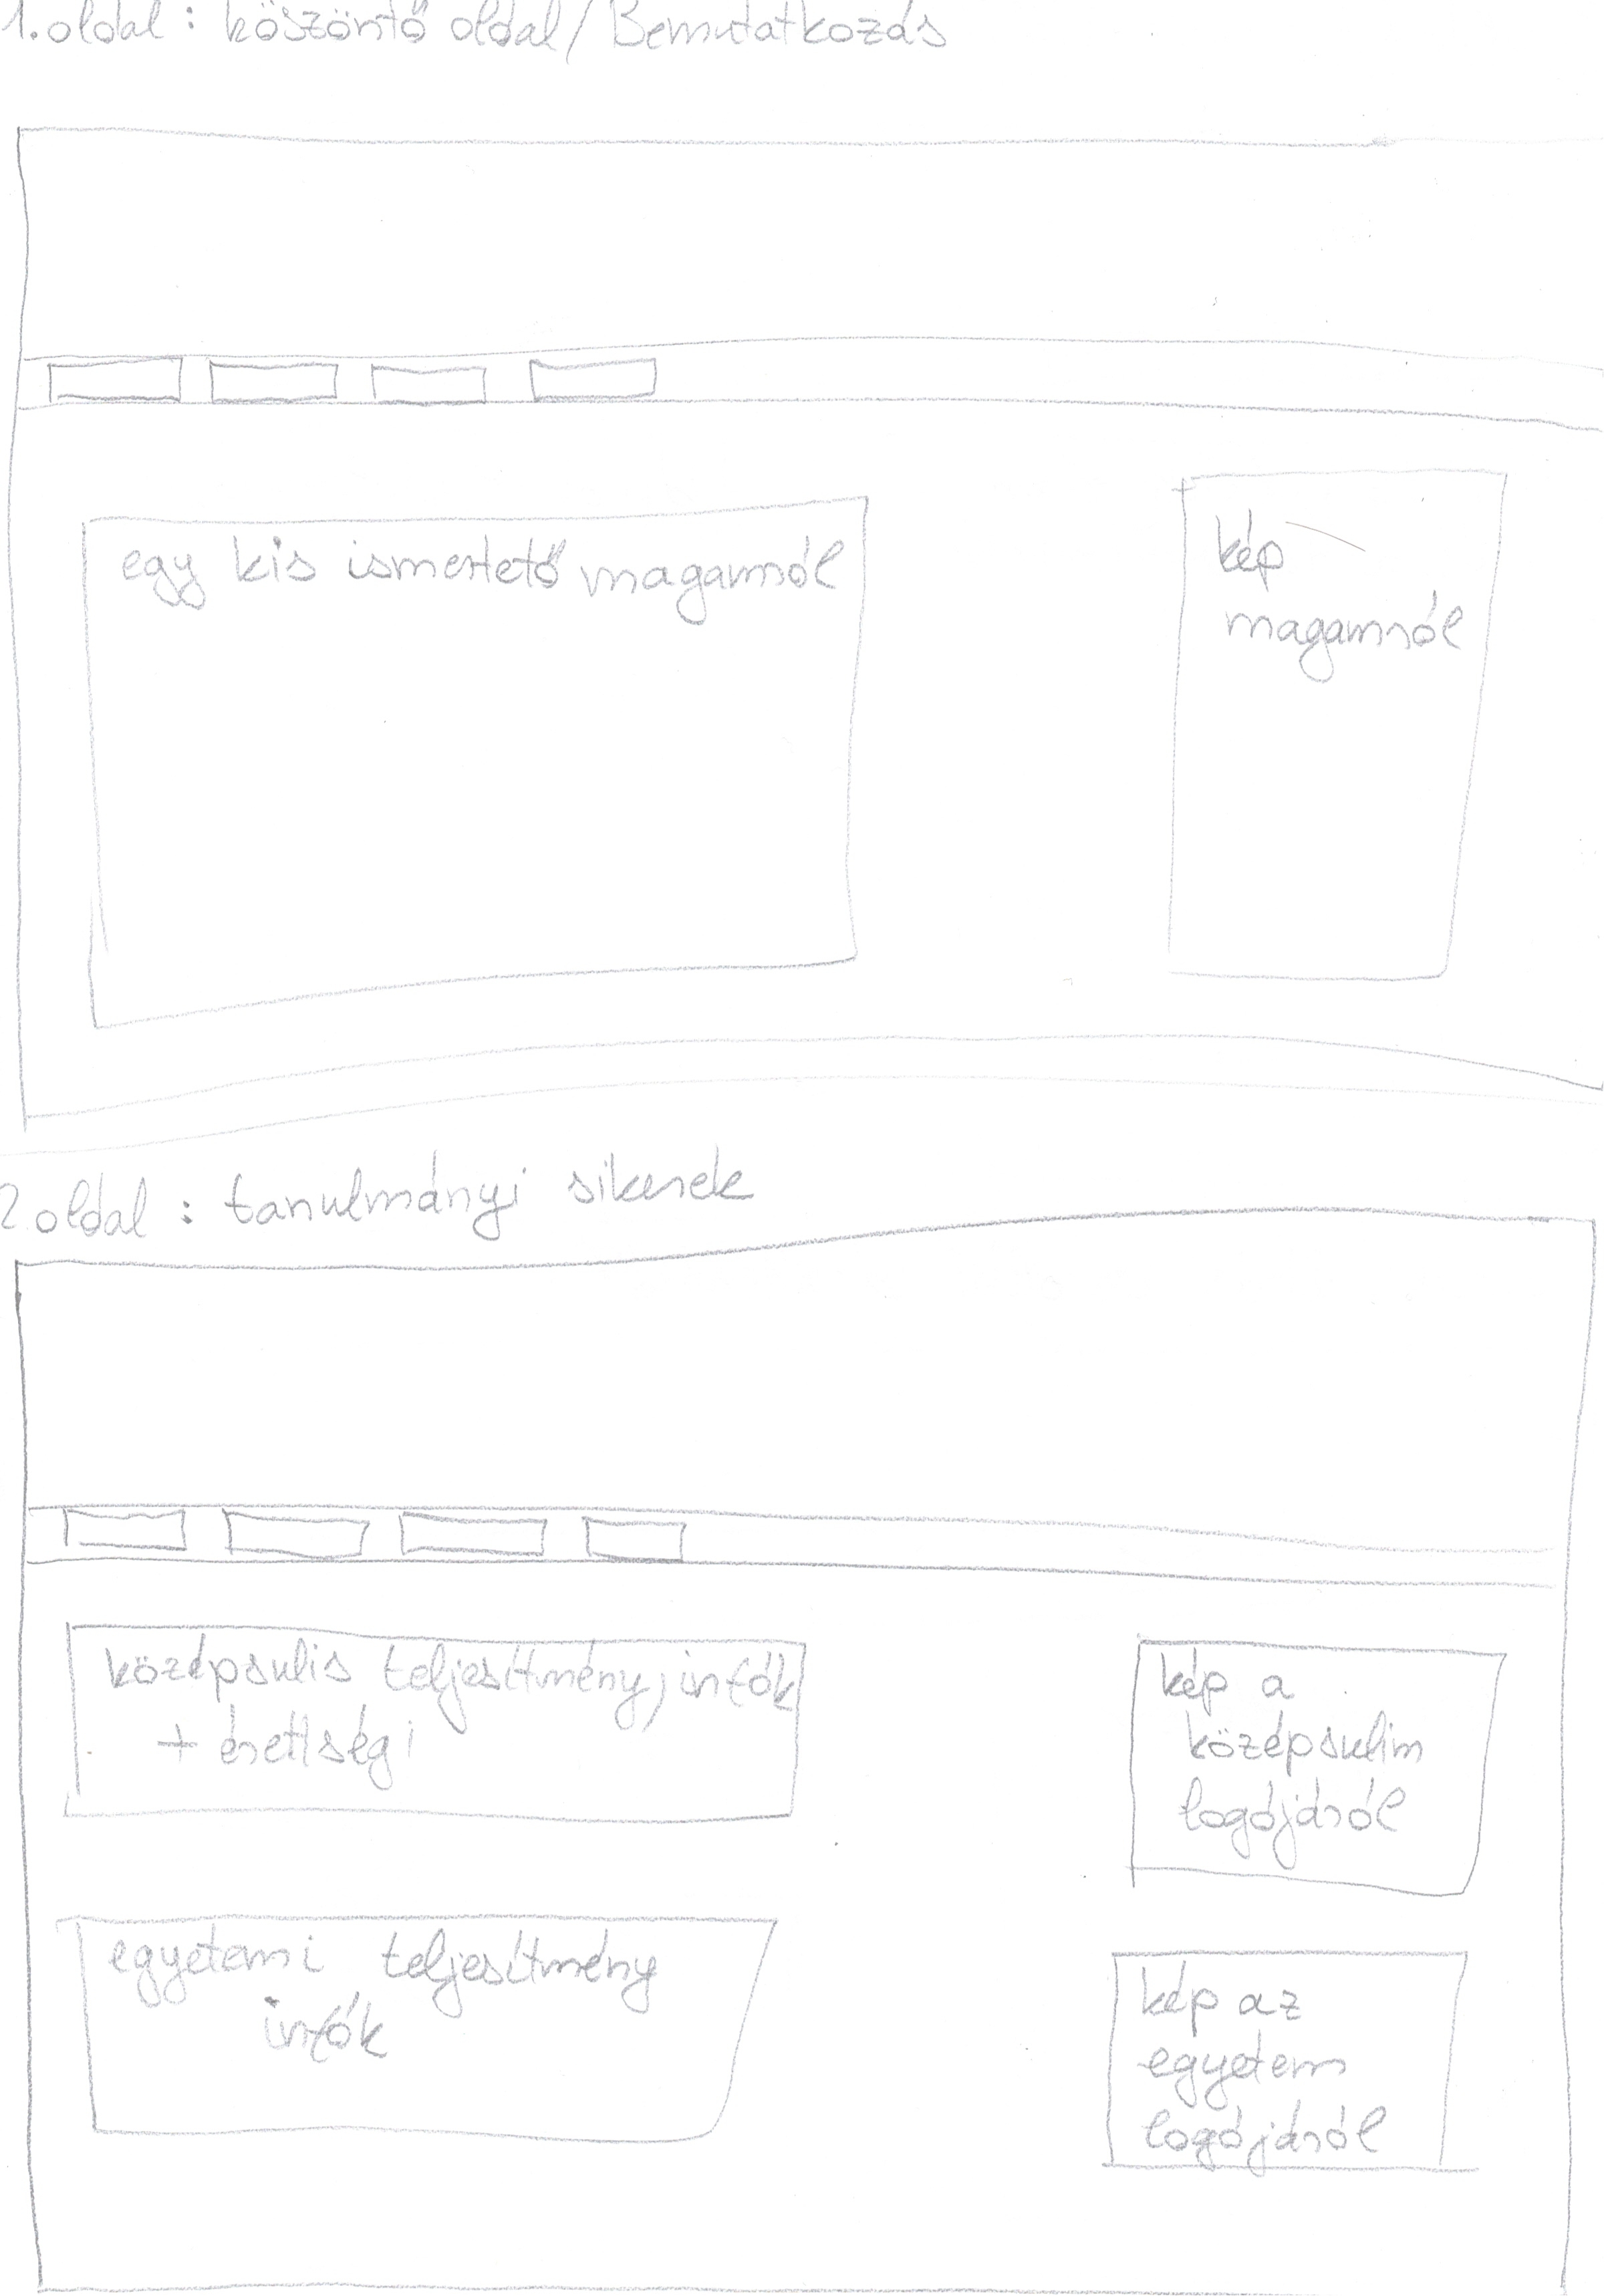 1. oldal : köszöntő oldal / Bemutatkozás
egy kis ismertető magamról
kép
magamról
2. oldal : tanulmányi sikerek
középsulis teljesítmény, infók
+ érettségi
kép a
középsulim
logójáról
egyetemi teljesítmény
infók
kép az
egyetem
logójáról